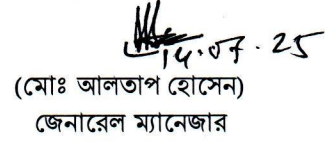 14.07.25
(মোঃ আলতাপ হোসেন)
জেনারেল ম্যানেজার